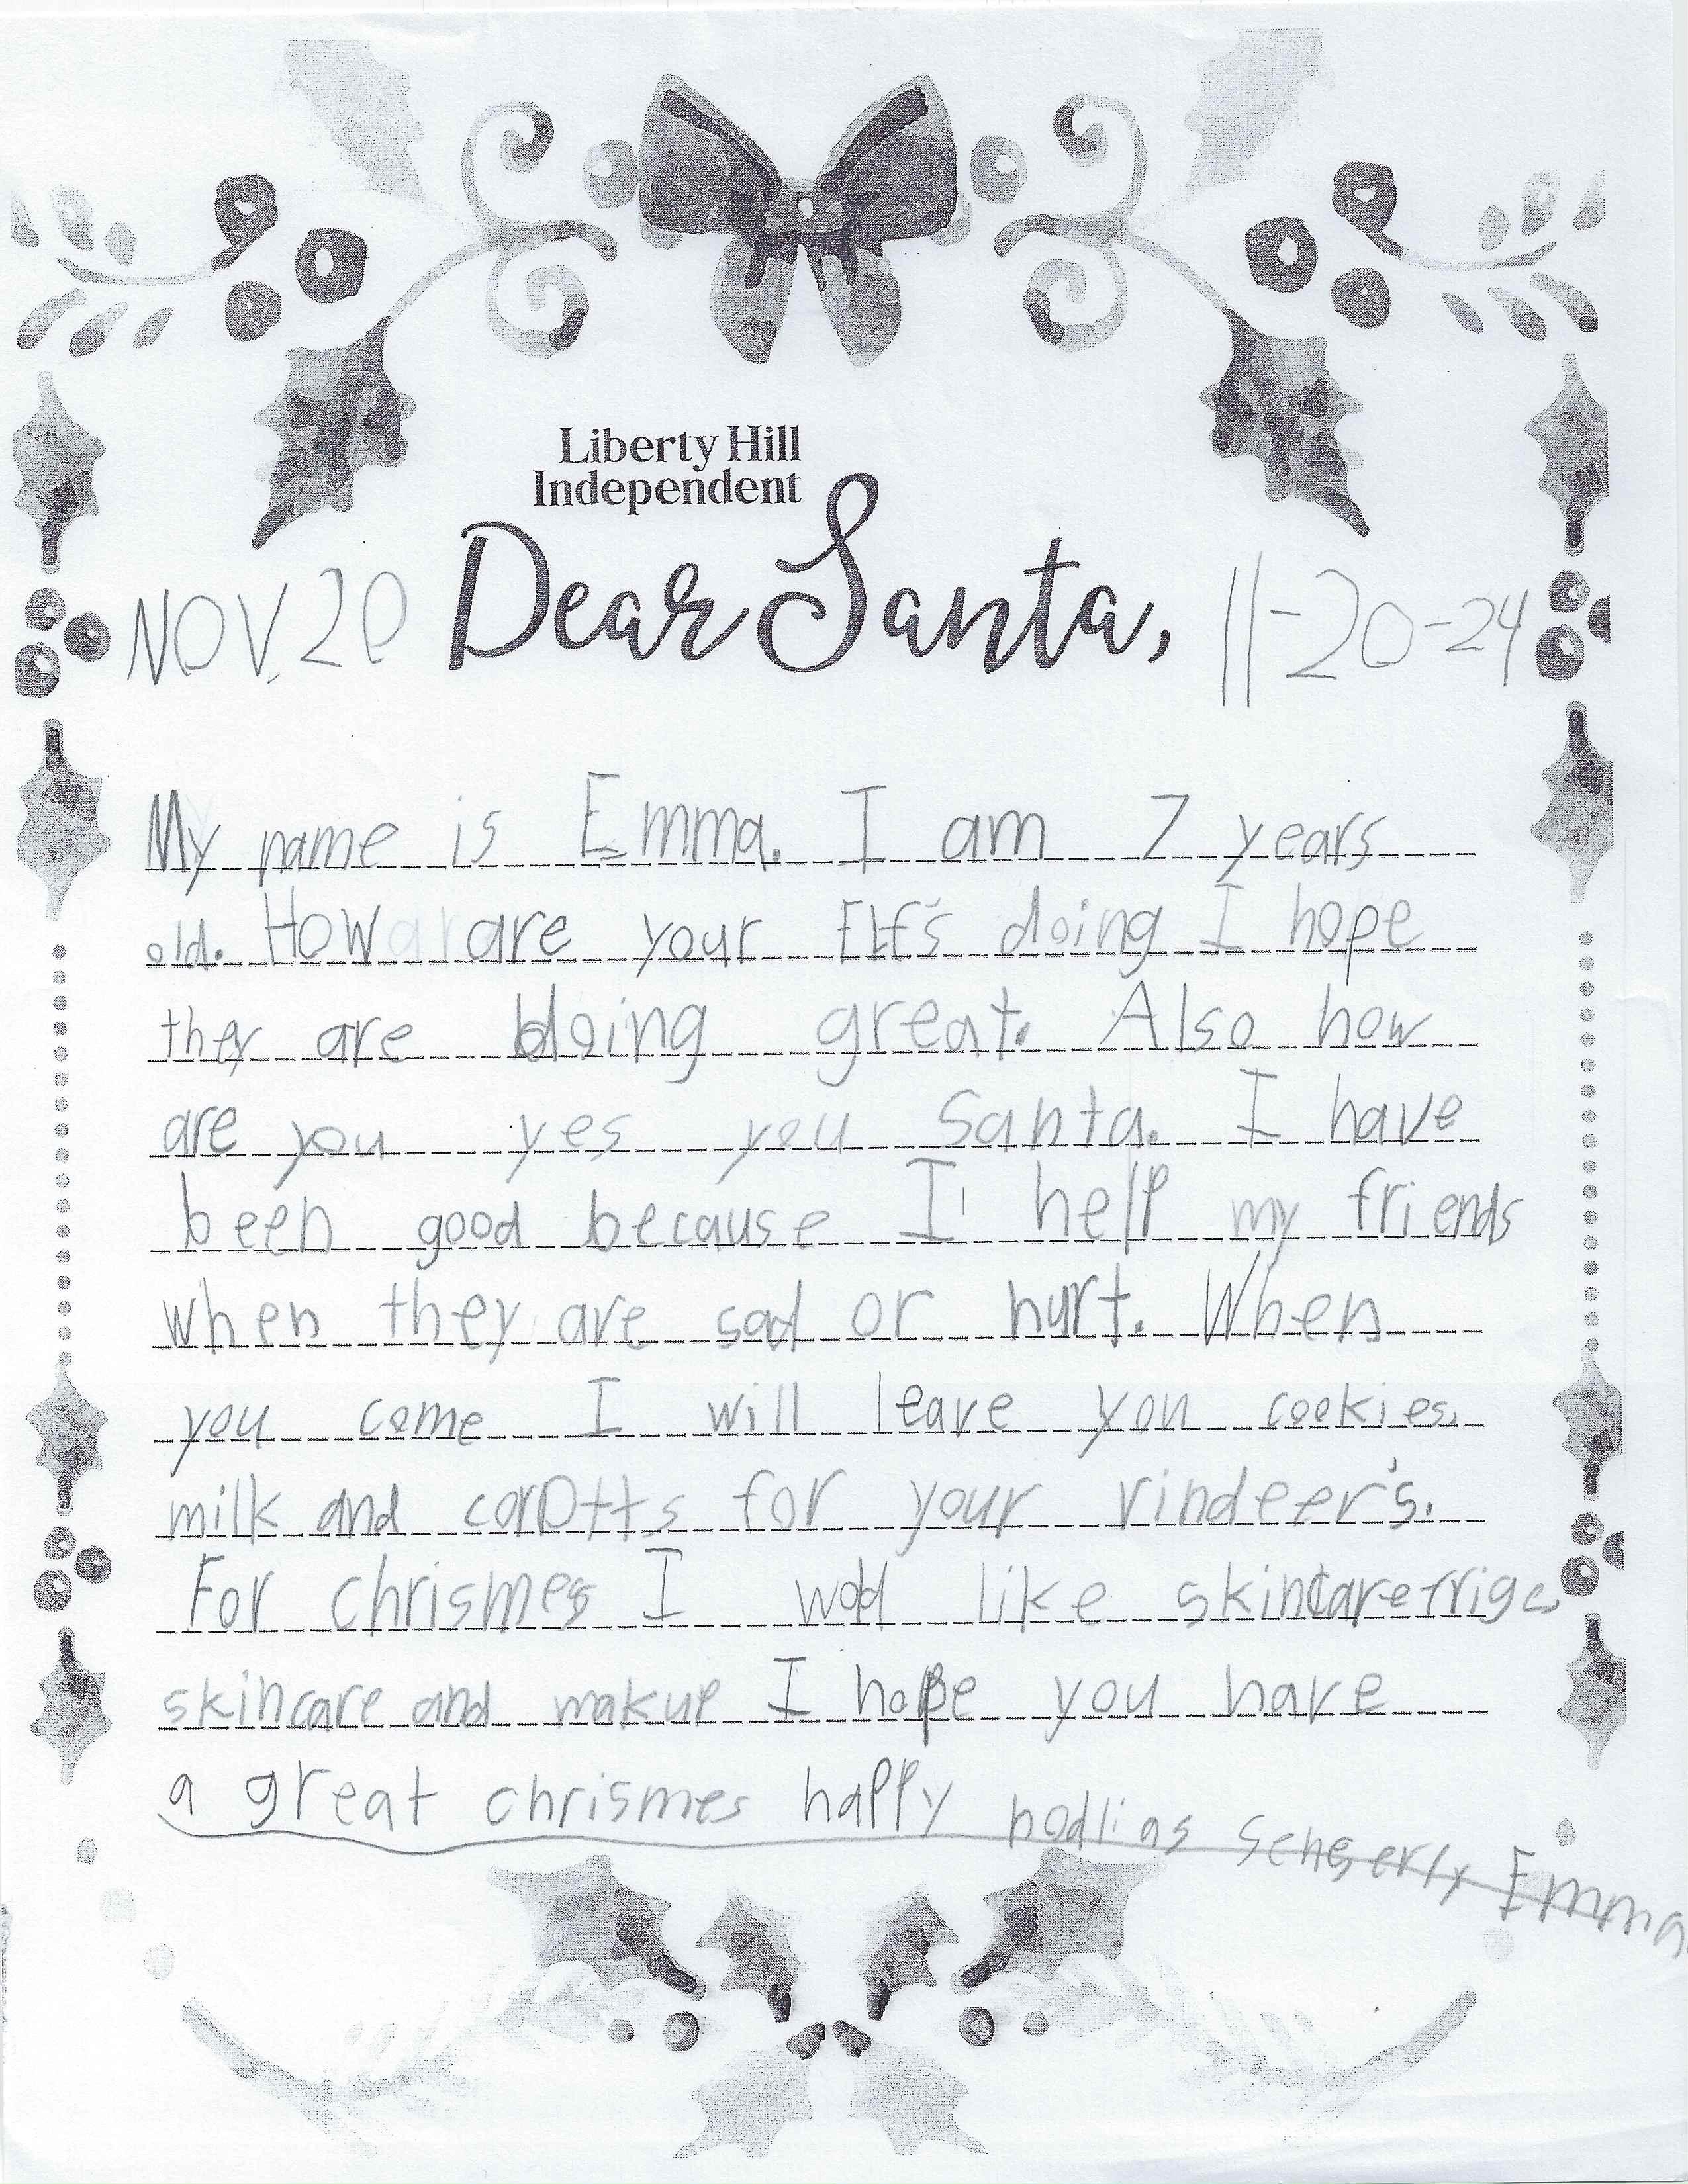 Liberty Hill
Independent
NOV. 20 Dear Santa, 11-20-24
My name is Emma. I am 7 years
old. How are your Elf's doing I hope
they are doing great. Also how
are you yes you Santa. I have
been good because I help my friends
when they are sad or hurt. When
you come I will leave you cookies,
milk and corotts for your rindeer's.
For chrismes I wod like skincare frige,
skincare and makup I hope you have
a great chrismes happy hodlias senserly Emma